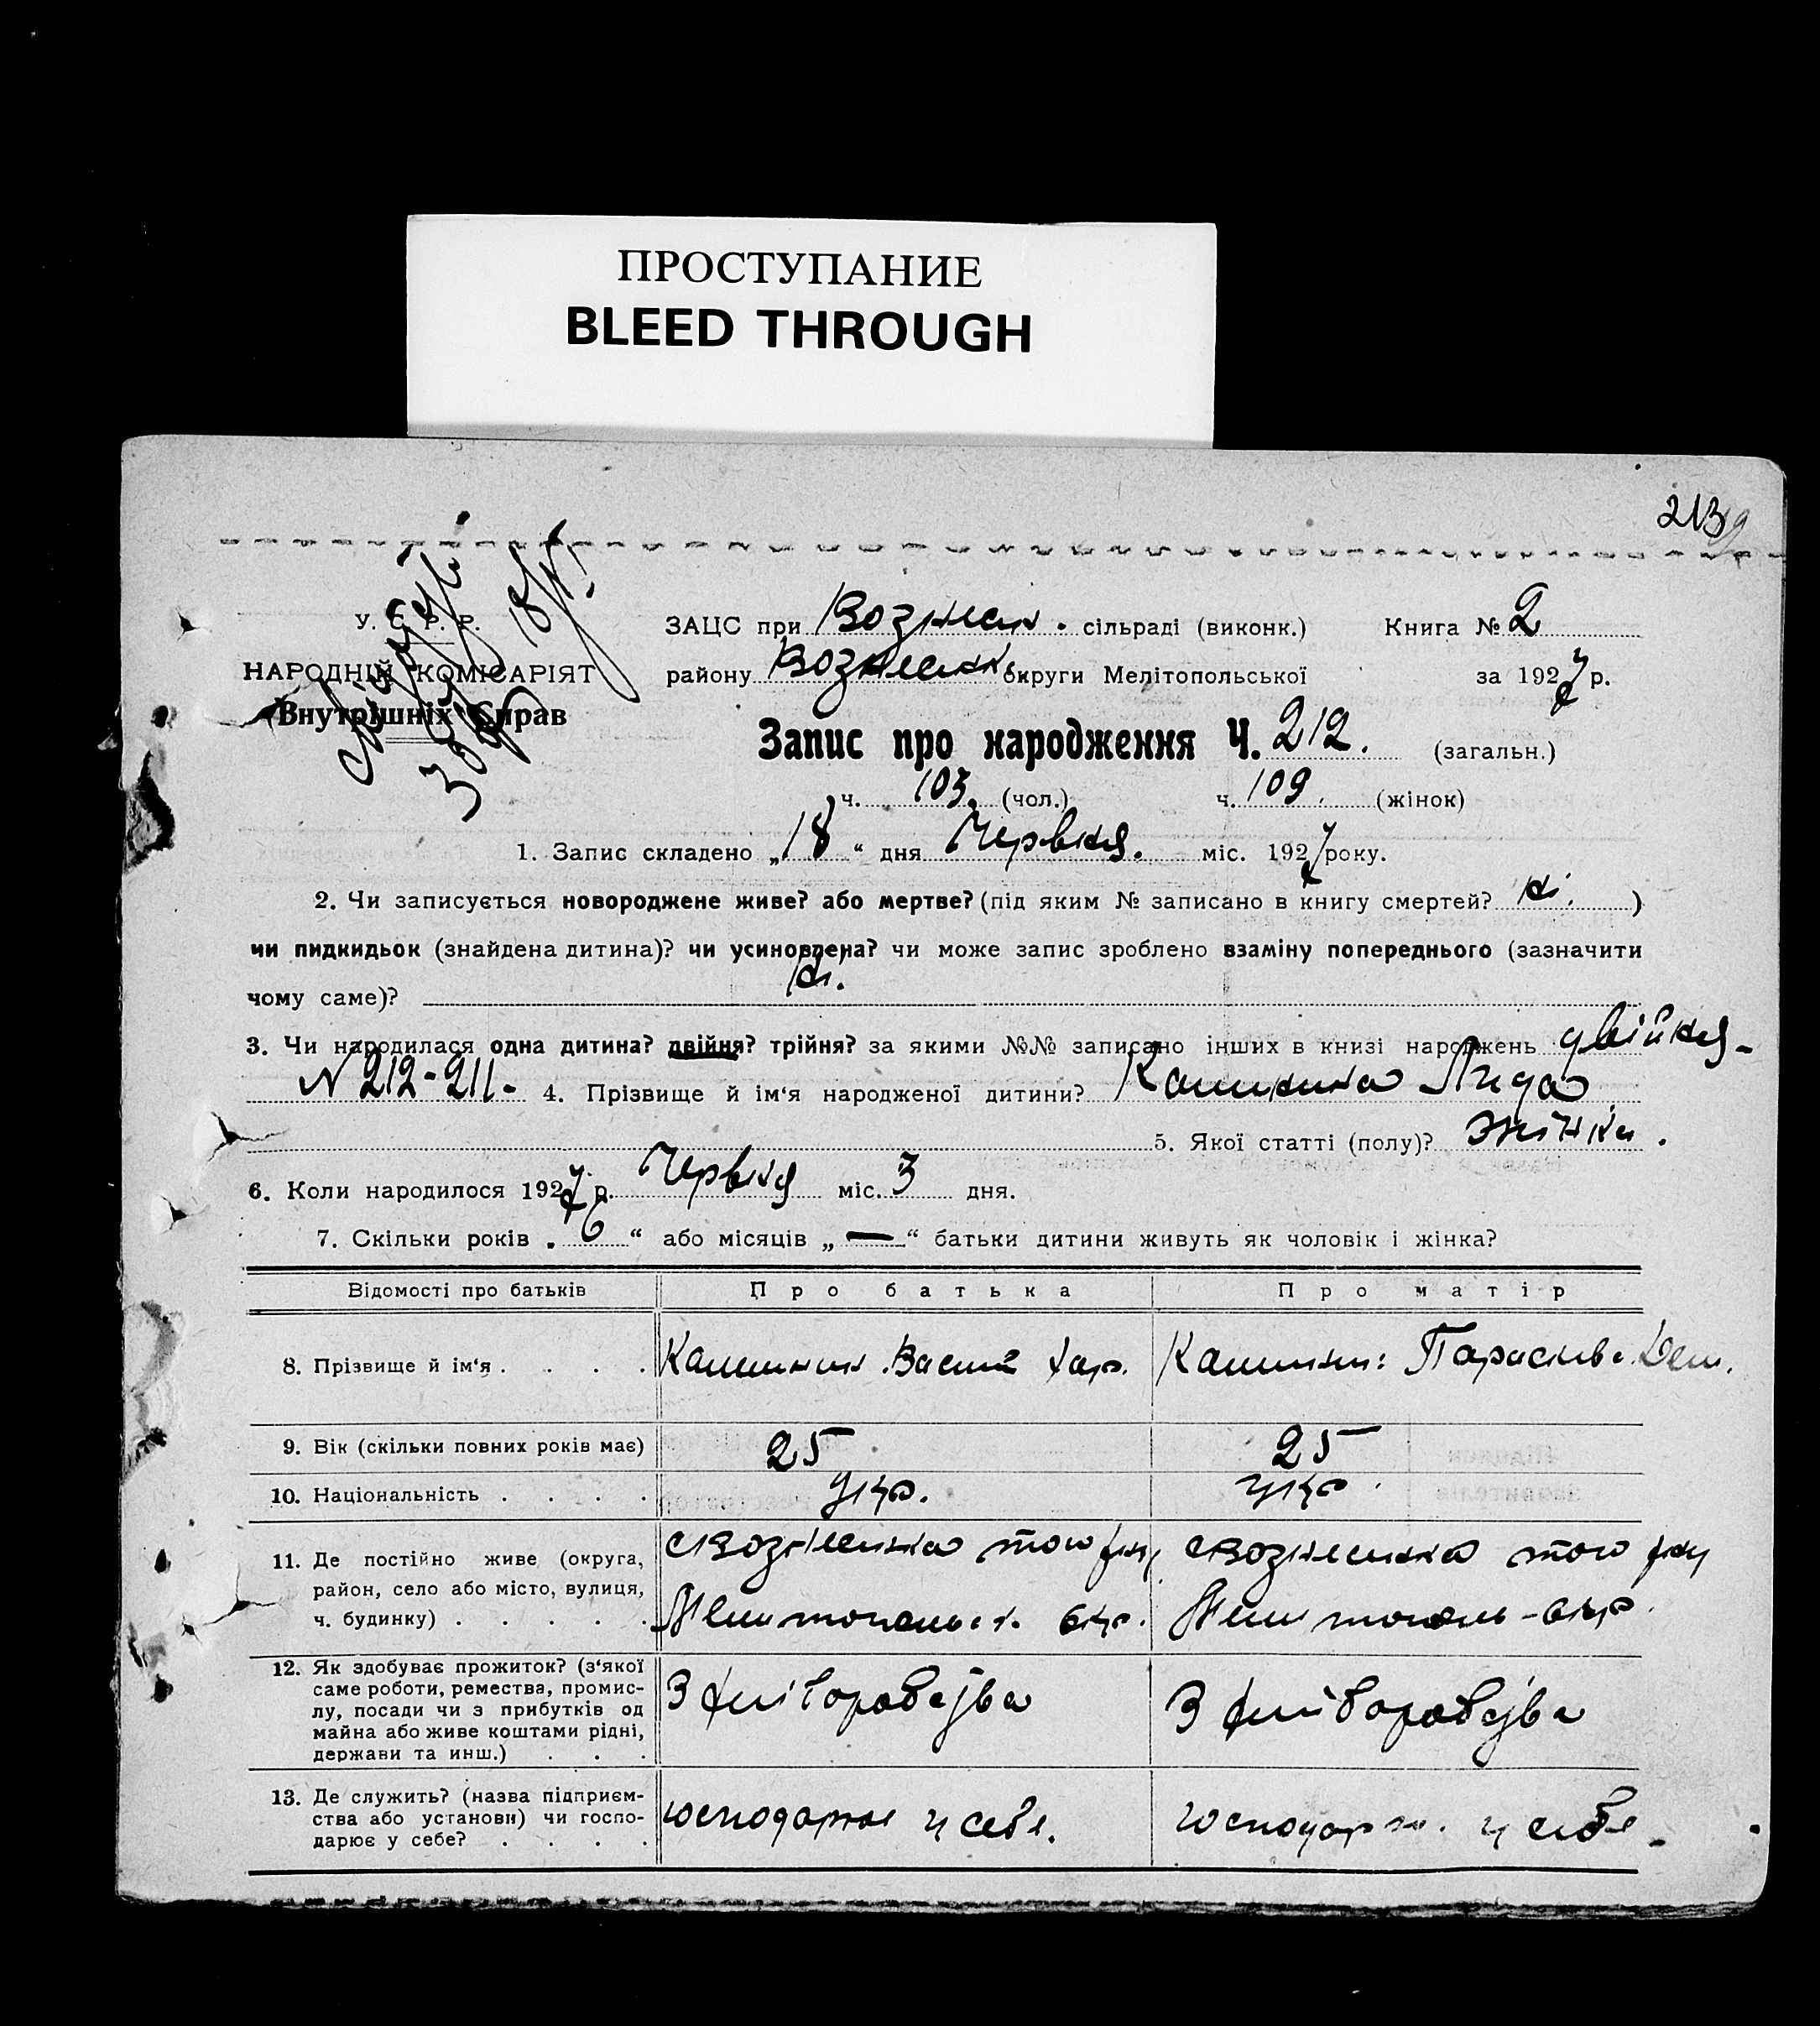 ПРОСТУПАНИЕ
BLEED THROUGH
213
У. С. Р. Р.
НАРОДНІЙ КОМІСАРІЯТ
Внутрішніх Справ
ЗАЦС при Вознесен. сільраді (виконк.) Книга № 2
району Вознесенк. округи Мелітопольської за 1927 р.
Запис про народження Ч. 212. (загальн.)
ч. 103. (чол.) ч. 109. (жінок)
1. Запис складено „18“ дня Червня. міс. 1927 року.
2. Чи записується новороджене живе? або мертве? (під яким № записано в книгу смертей? ні. )
чи пидкидьок (знайдена дитина)? чи усиновлена? чи може запис зроблено взаміну попереднього (зазначити
чому саме)? ні.
3. Чи народилася одна дитина? двійня? трійня? за якими №№ записано інших в книзі народжень двійня-
N 212-211- 4. Прізвище й ім‘я народженої дитини? Лида
5. Якої статті (полу)? жінка.
6. Коли народилося 1927 р. Червня міс. 3 дня.
7. Скільки років „6“ або місяців „—“ батьки дитини живуть як чоловік і жінка?
Відомості про батьків Про батька Про матір
8. Прізвище й ім‘я . . . .
9. Вік (скільки повних років має) 25 25
10. Національність . . . . Укр. Укр.
11. Де постійно живе (округа, район, село або місто, вулиця, ч. будинку) . . . . . с Вознесенка того с Вознесенка того
Мелитопольск. окр. Мелитополь-окр.
12. Як здобуває прожиток? (з‘якої саме роботи, ремества, промислу, посади чи з прибутків од майна або живе коштами рідні, держави та инш.) . . . З З
13. Де служить? (назва підприємства або установи) чи господарює у себе? . . . . господарює у себе. господарю. у себе.